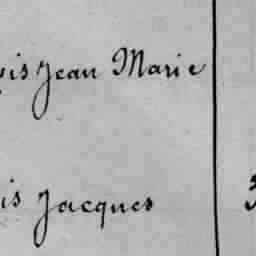 Jean Marie
Jacques